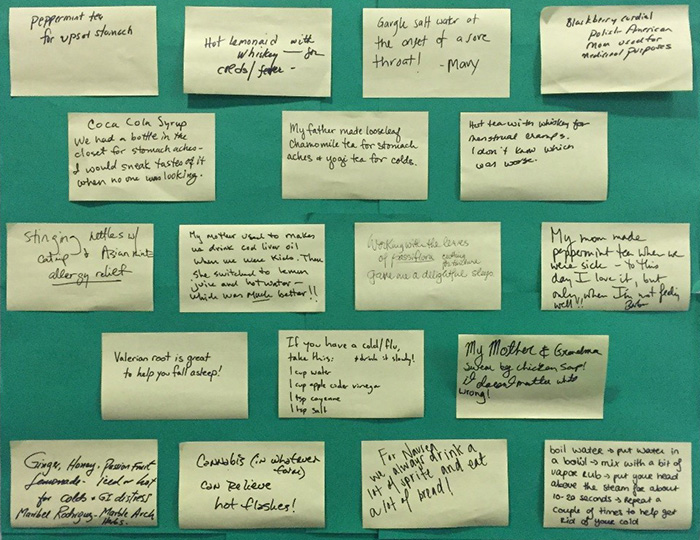 Peppermint tea
for upset stomach
Hot Lemonaid with
whiskey — for
colds/fever -
Gargle salt water at
the onset of a sore
throat! - Mary
Blackberry cordial
Polish American
Mom used for
medicinal purposes
Coca Cola Syrup
We had a bottle in the
closet for stomach aches -
I would sneak tastes of it
when no one was looking.
My father made looseleaf
Chamomile tea for stomach
aches & yogi tea for colds.
Hot tea with whiskey for
menstrual cramps.
I don't know which
was worse.
Stinging nettles w/
catnip & Asian mint
allergy relief
My mother used to make us
drink cod liver oil
when we were kids. Then
she switched to lemon
juice and hot water -
which was much better!!
Working with the leaves
of passiflora
gave me a delightful sleep
My mom made
peppermint tea when we
were sick - to this
day I love it, but
only when I'm not feeling
well!!
Valerian root is great
to help you fall asleep!
If you have a cold/flu,
take this: & drink it slowly!
1 cup water
1 cup apple cider vinegar
1 tsp cayenne
1 tsp salt
My Mother & Grandma
swear by chicken soup!
it doesn't matter what's
wrong!
Ginger, Honey, Passion Fruit
Lemonade. Iced or hot
for colds + GI distress
Maribel Rodriguez - Marble Arch
Herbs.
Cannabis (in whatever
form)
can relieve
hot flashes!
For Nausea
we always drink a
lot of sprite and eat
a lot of bread!
boil water → put water in
a bowl → mix with a bit of
vapor rub → put your head
above the steam for about
10-20 seconds → Repeat a
couple of times to help get
rid of your cold